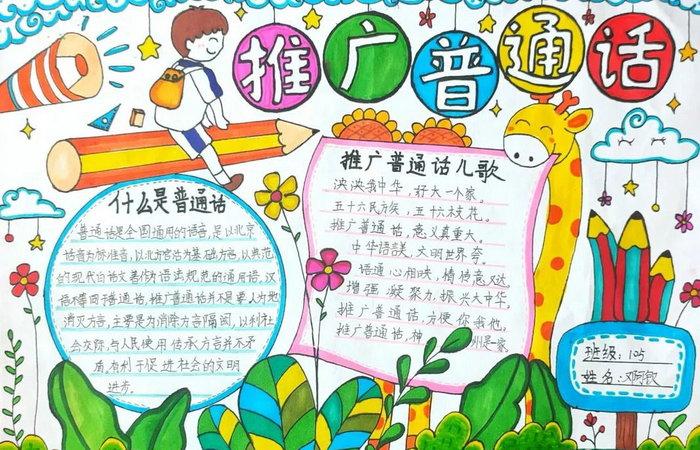 推广普通话
什么是普通话
普通话是全国通用的语言,是以北京
语音为标准音,以北方官话为基础方言,以典范
的现代白话文著作为语法规范的通用语。汉
语不等同于普通话,推广普通话并不是要人为地
消灭方言,主要是为消除方言隔阂,以利社
会交际,与人民使用传承方言并不矛
盾,有利于促进社会的文明
进步。
推广普通话儿歌
泱泱我中华,好大一个家。
五十六民族,五十六支花。
推广普通话,意义真重大。
中华语言美,文明世界夸。
语通心相映,情传意又达,
增强凝聚力,振兴大中华。
推广普通话,方便你我他。
推广普通话,神 州是一家
班级:105
姓名:邓